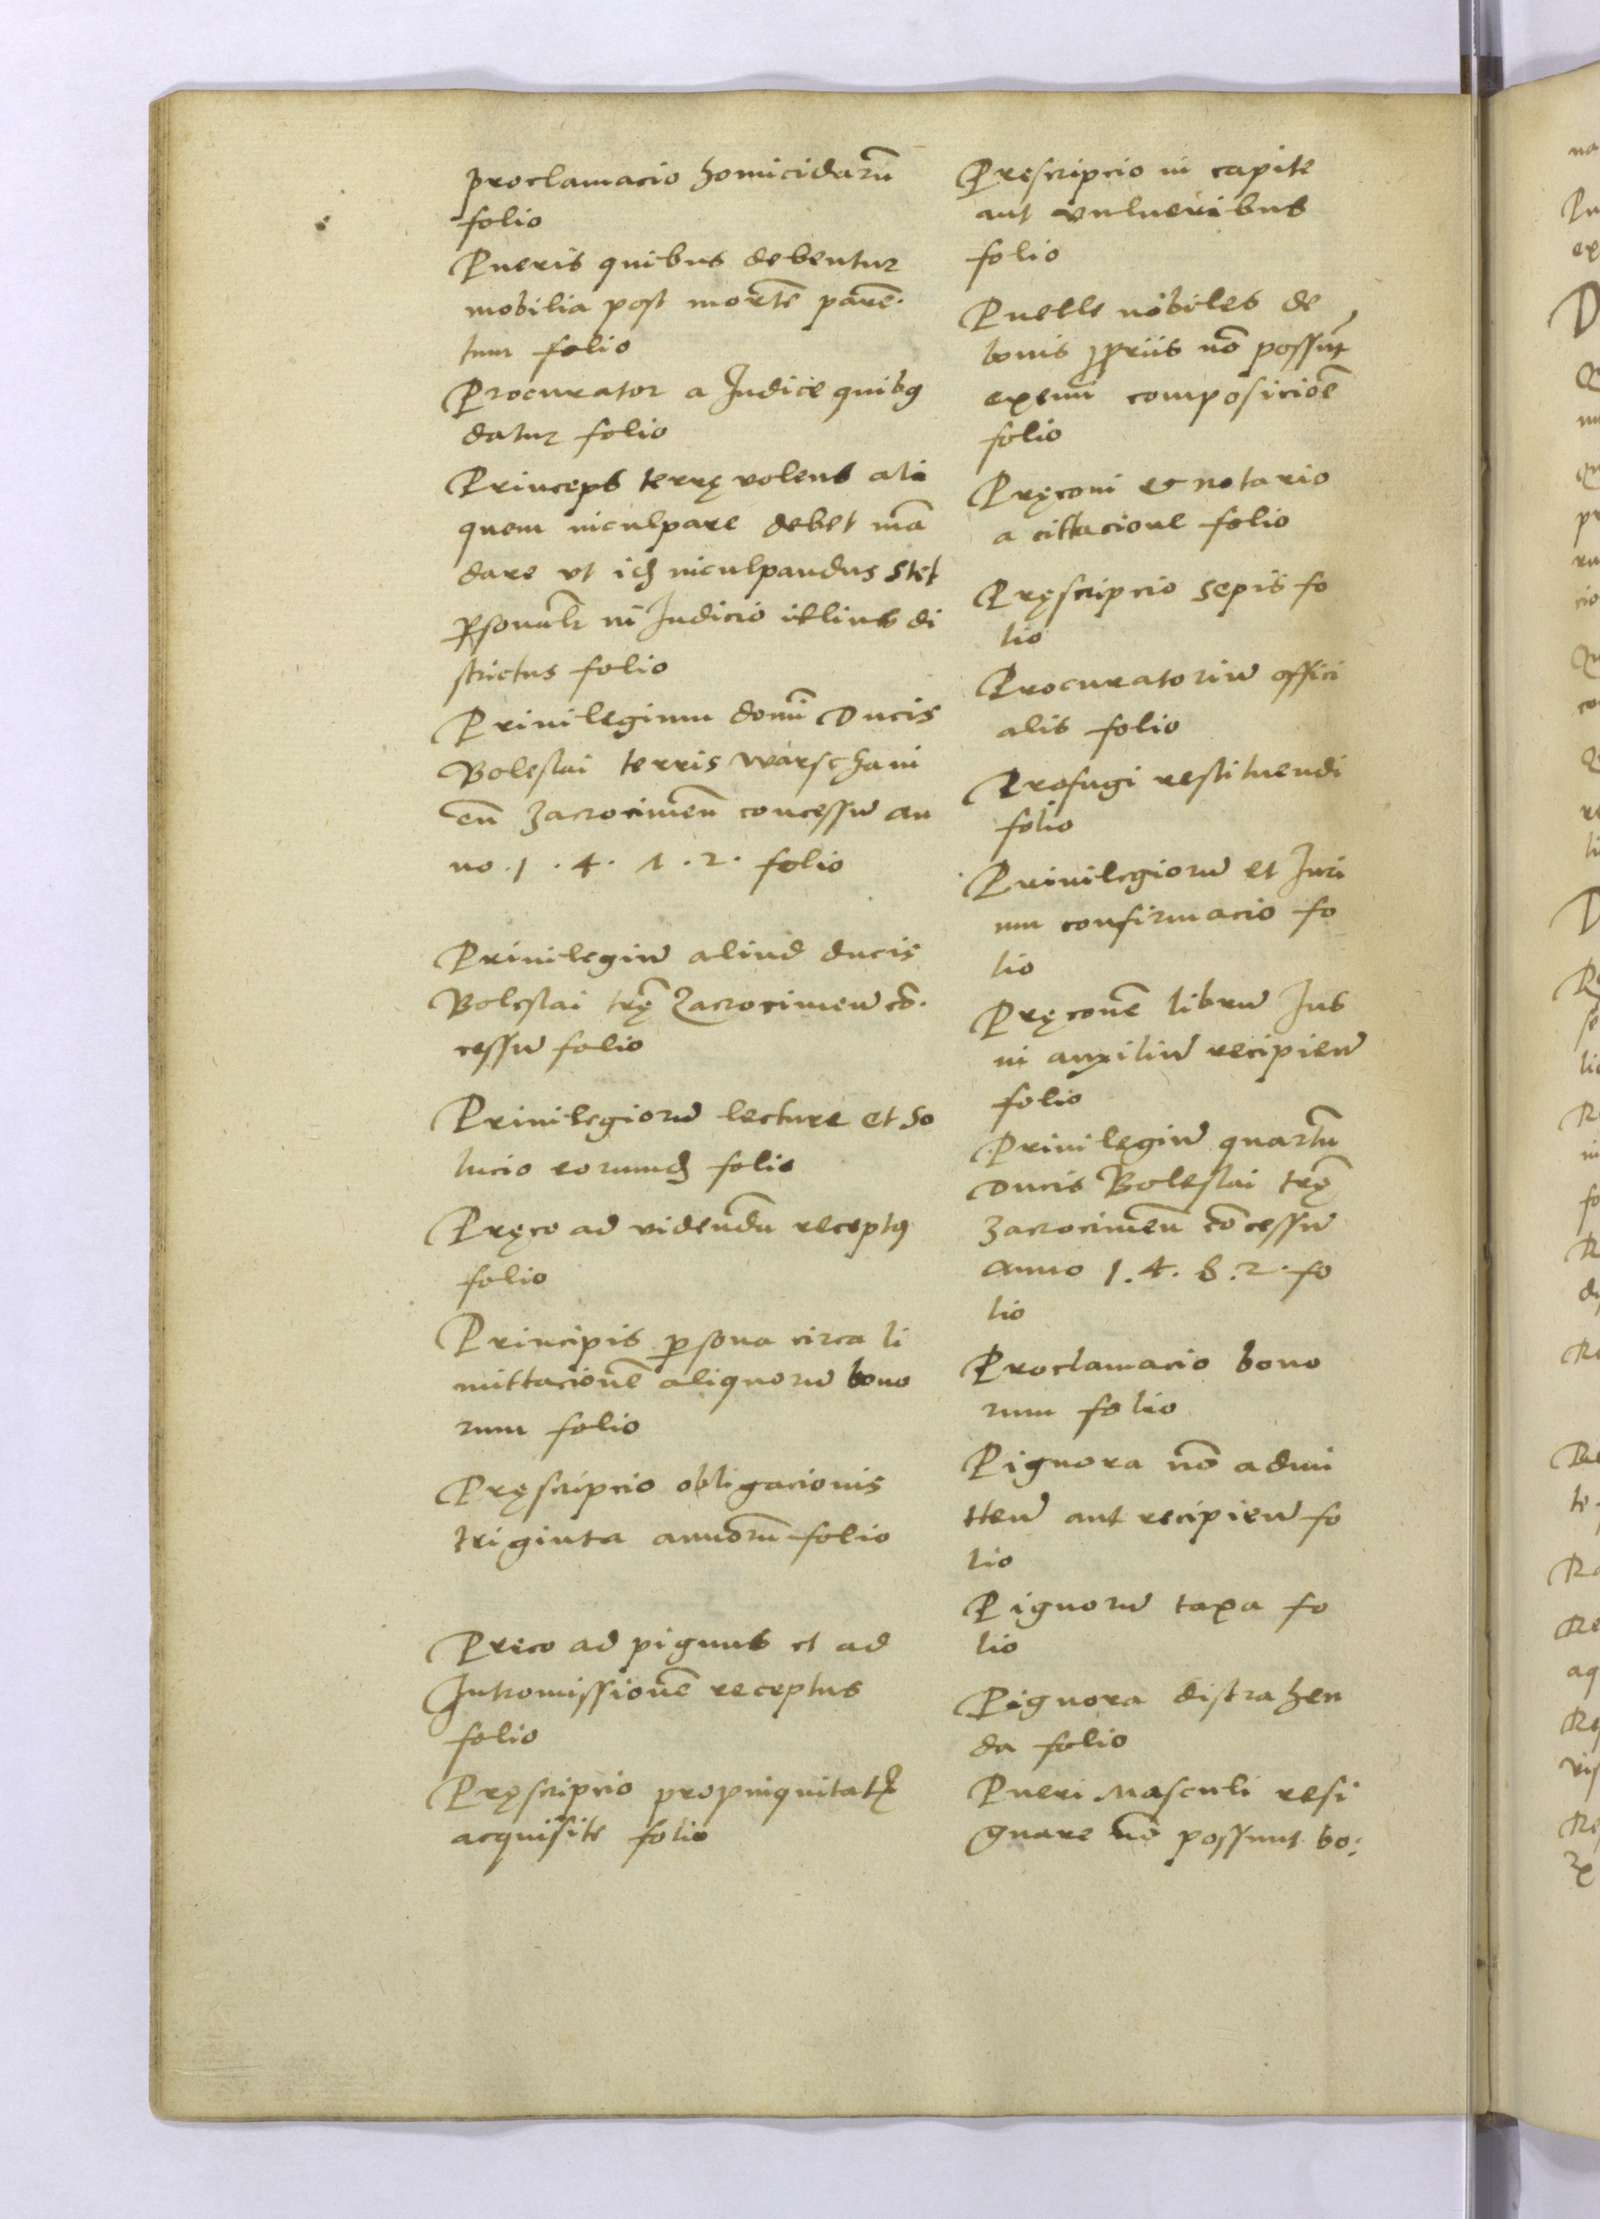 proclamacio homicidarū
folio
Pueris quibus debentur
mobilia post mortē parē
tum folio
Procurator a Judice quibꝰ
datur folio
Princeps terrę volens ali
quem inculpare debet mā
dare vt idē inculpandus stet
ꝑsonalr̄ in Judicio illius di
strictus folio
Priuilegium domī Ducis
Boleslai terris warschaui
eñ zacrocimeñ concessū an
no .1.4.1.2. folio
Priuilegiū aliud ducis
Boleslai trę̄ Zacrocimeñ cō
cessū folio
Priuilegiorū lecture et so
lucio eorumdē folio
Pręco ad videndū receptꝰ
folio
Principis ꝑsona circa li
mittacionē aliquorū bono
rum folio
Pręscripcio obligacionis
triginta annorū folio
Preco ad pignus et ad
Intromissionē receptus
folio
Pręscripcio propinquitatꝭ
acquisite folio
Pręscripcio in capite
aut vulneribus
folio
Puelle nobiles de
bonis ꝓpriis nō possūt
exenī composiciōē
folio
Pręconi et notario
a cittacione folio
Pręscripcio sepis fo
lio
Procuratoriū offici
alis folio
Profugi restituendi
folio
Priuilegiorū et Juri
um confirmacio fo
lio
Pręconē librū Jus
in auxiliū recipieñ
folio
Priuilegiū quartū
Ducis Boleslai trę̄
zacrocimeñ cōcessū
anno 1.4.8.2. fo
lio
Proclamacio bono
rum folio
Pignora nō admi
tteñ aut recipieñ fo
lio
Pignorū taxa fo
lio
Pignora distrahen
da folio
Pueri Masculi resi
gnare nō possunt bo: